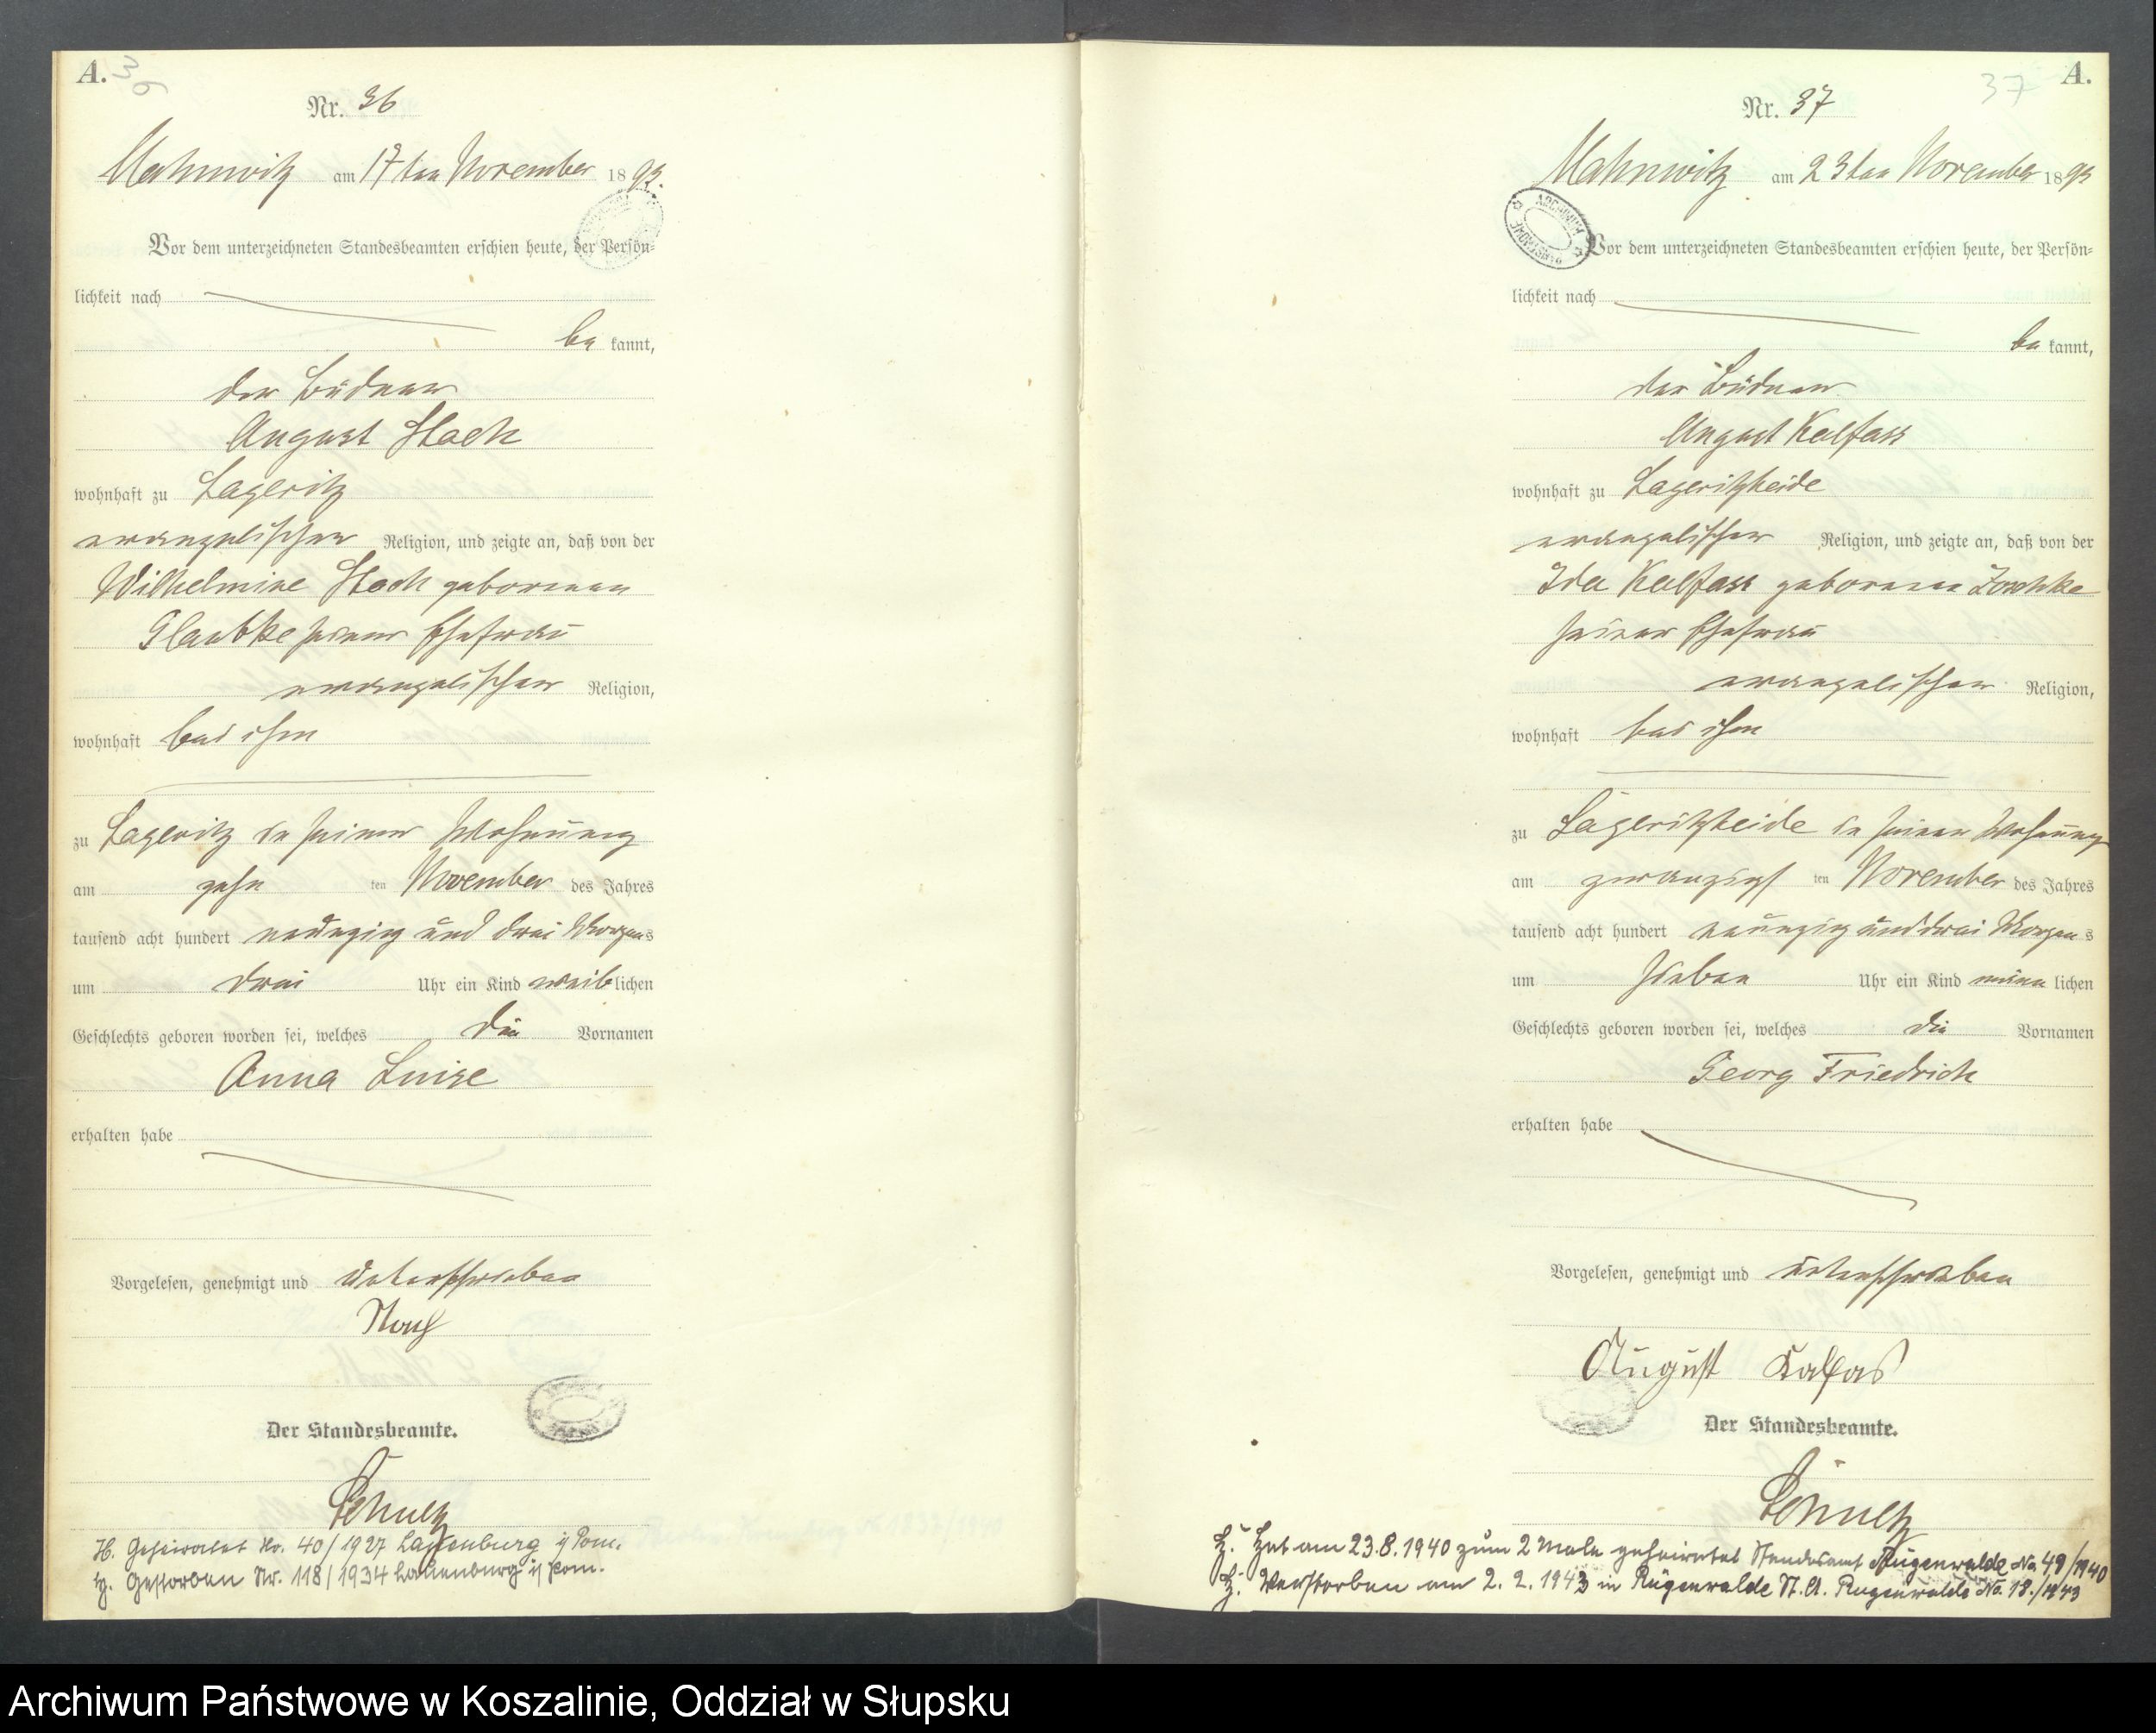 A. 36
Nr. 36
Mahnwitz am 17ten November 1893.
Vor dem unterzeichneten Standesbeamten erschien heute, der Persön-
lichkeit nach
bekannt,
der Büdner
August Stach
wohnhaft zu Lageritz
evangelischer Religion, und zeigte an, daß von der
Wilhelmine Stach geborenen
seiner Ehefrau
evangelischer Religion,
wohnhaft bei ihm
zu Lageritz in seiner Wohnung
am zehn ten November des Jahres
tausend acht hundert neunzig und drei Morgens
um drei Uhr ein Kind weiblichen
Geschlechts geboren worden sei, welches die Vornamen
Anna Luise
erhalten habe
Vorgelesen, genehmigt und unterschrieben
Stach
Der Standesbeamte.
Schultz
H. Geheiratet Nr. 40/1927 Lauenburg i/Pom.
Gestorben Nr. 118/1934 Lauenburg i/Pom.
37 A.
Nr. 37
Mahnwitz am 23ten November 1893
Vor dem unterzeichneten Standesbeamten erschien heute, der Persön-
lichkeit nach
bekannt,
der Büdner
August Kalfass
wohnhaft zu Lageritzheide
evangelischer Religion, und zeigte an, daß von der
Ida Kalfass geborenen Zoschke
seiner Ehefrau
evangelischer Religion,
wohnhaft bei ihm
zu Lageritzheide in seiner Wohnung
am zwanzigst ten November des Jahres
tausend acht hundert neunzig und drei Morgens
um sieben Uhr ein Kind männlichen
Geschlechts geboren worden sei, welches die Vornamen
Georg Friedrich
erhalten habe
Vorgelesen, genehmigt und unterschrieben
August Kalfas
Der Standesbeamte.
Schultz
Hat am 23.8.1940 zum 2 Male geheiratet Standesamt Rügenwalde No 49/1940
Verstorben am 2.2.1943 in Rügenwalde St. A. Rügenwalde No. 18./1943
Archiwum Państwowe w Koszalinie, Oddział w Słupsku